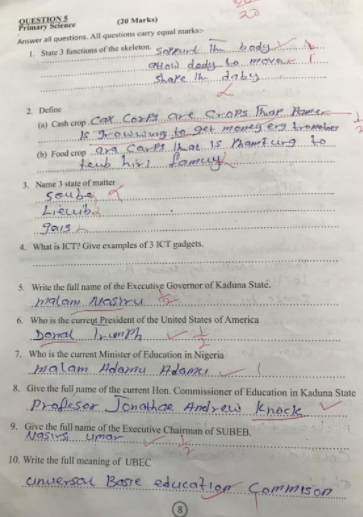 QUESTION 5
Primary Science
(20 Marks)
20
Answer all questions. All questions carry equal marks:-
1. State 3 functions of the skeleton. Sopport th body
allow dody to move
Shape th daby
2. Define
(a) Cash crop Cax Corps are Crops that
is growwing to get money eng
(b) Food crop are Carps that is to
hirs famuy
3. Name 3 state of matter
Soube
Liewib
gais
4. What is ICT? Give examples of 3 ICT gadgets.
5. Write the full name of the Executive Governor of Kaduna State.
malam Nasiru 1/2
6. Who is the current President of the United States of America
Donal Trumph 1/2
7. Who is the current Minister of Education in Nigeria
malam Adamu Adamu 1
8. Give the full name of the current Hon. Commissioner of Education in Kaduna State
Profesor Jonathae Andrew Knock
9. Give the full name of the Executive Chairman of SUBEB.
Nasirs umar 1/2
10. Write the full meaning of UBEC
unversal Base education Commison
8